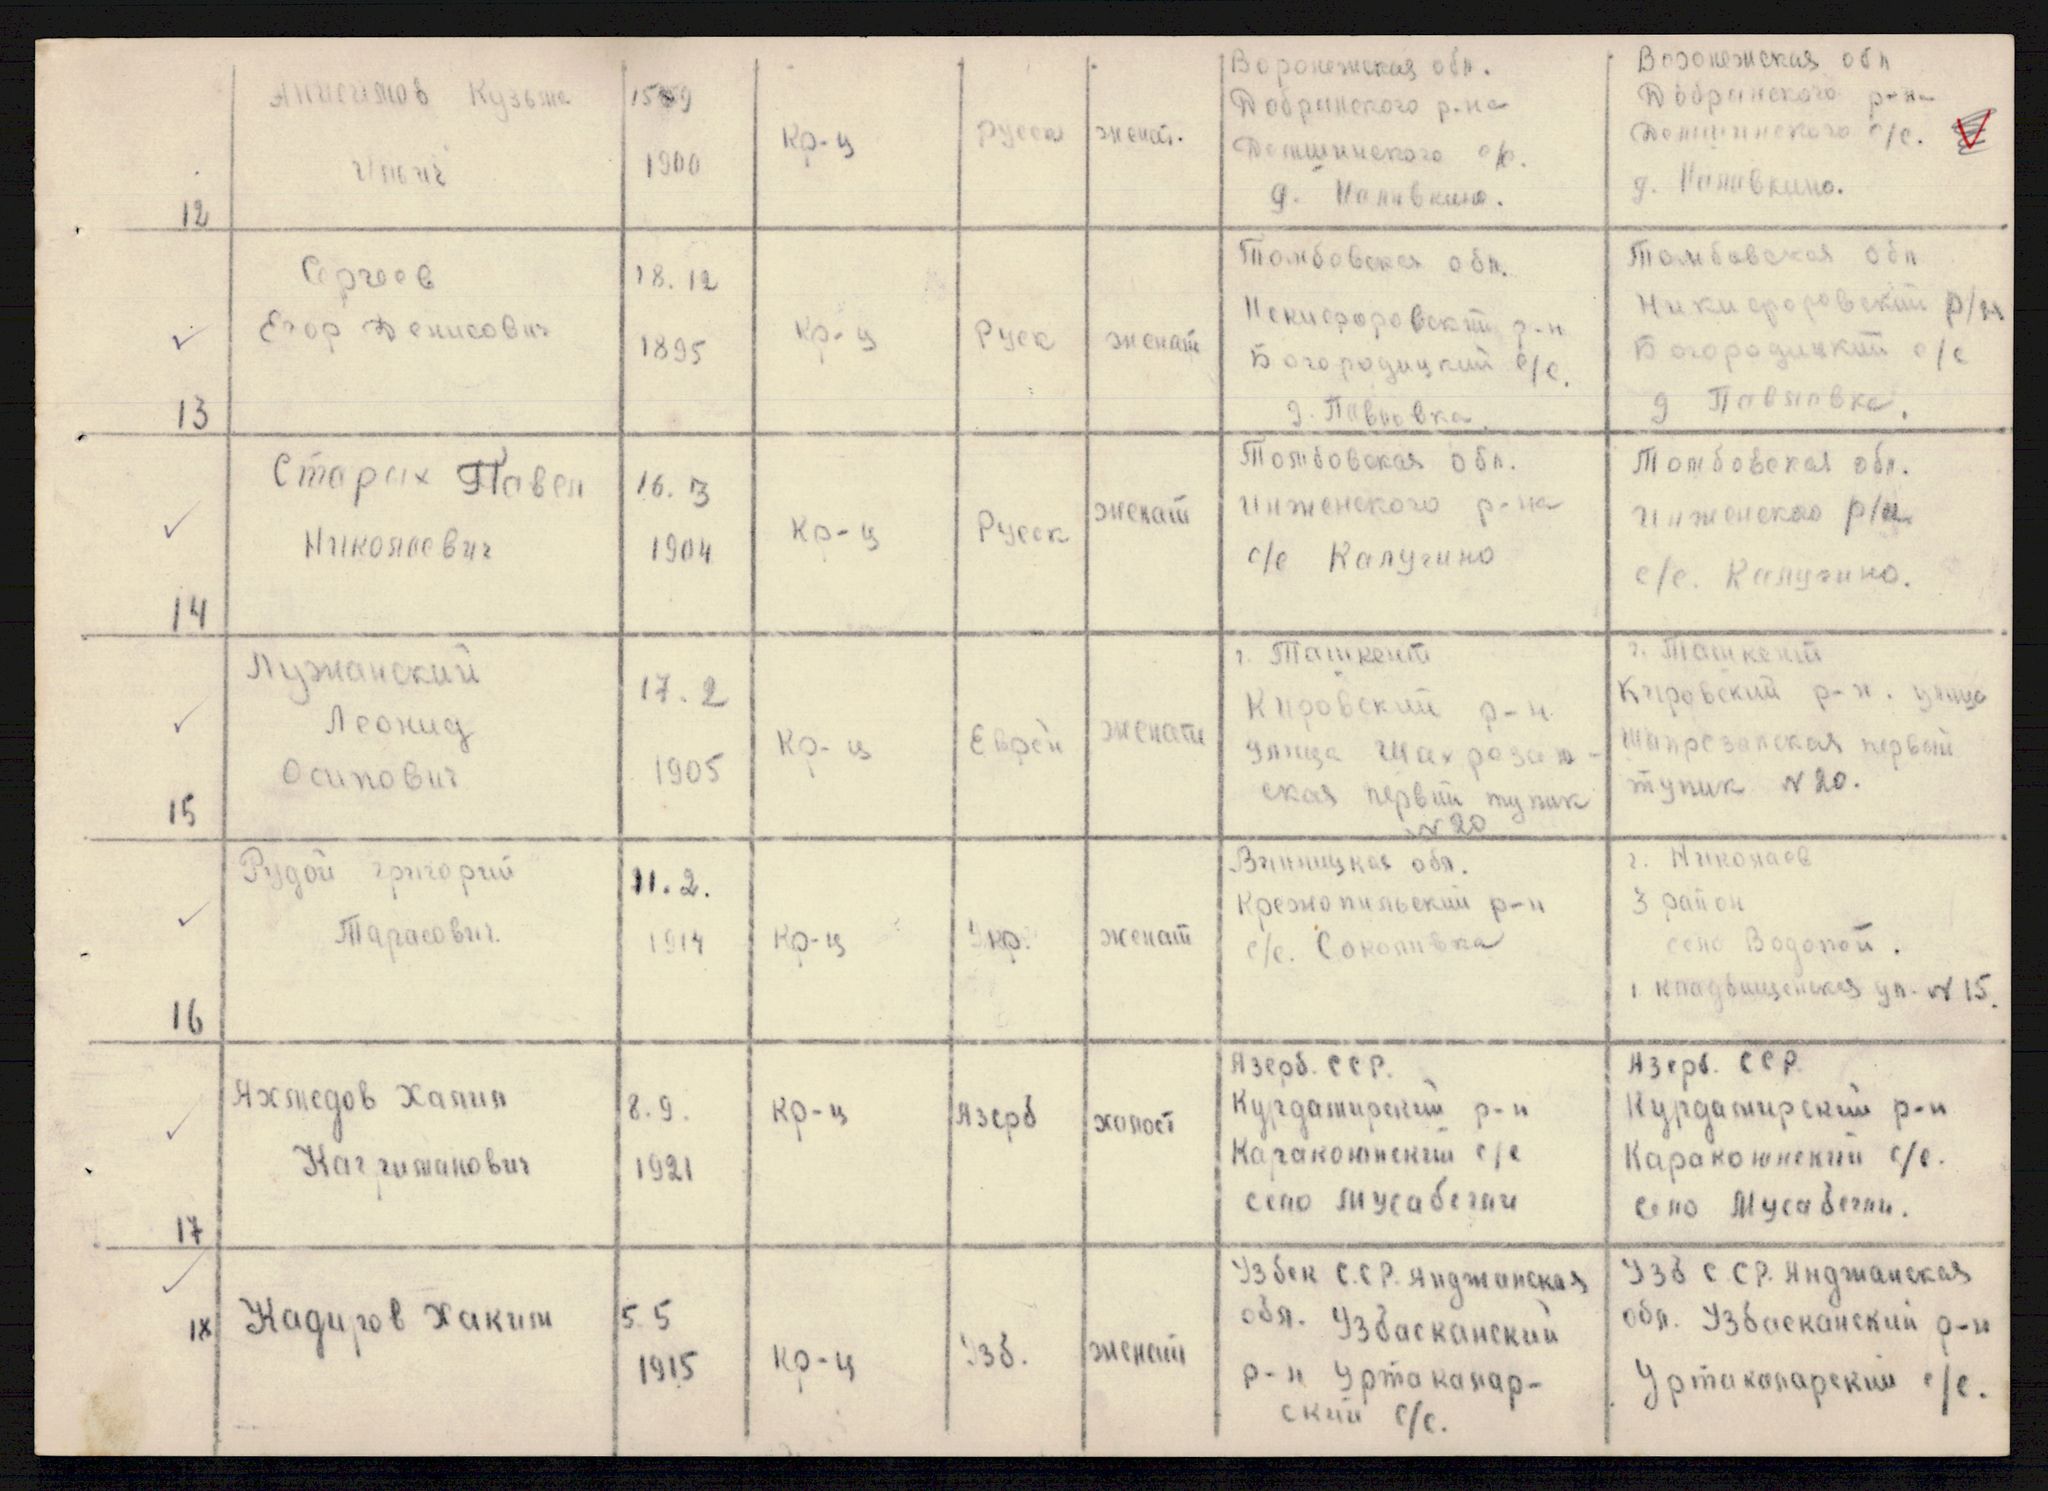 Анисимов Кузьма
Ильич
12
1900
Кр-ц
Русск
женат.
Воронежская обл.
Добринского р-на
Демшинского с/с.
д. Наливкино.
Воронежская обл
Добринского р-на
Демшинского с/с.
д. Наливкино.
Сергеев
Егор Денисович
13
18. 12
1895
Кр-ц
Руск
женат
Томбовская обл.
Никифоровский р-н
Богородицкий с/с.
д. Павловка.
Томбовская обл
Никифоровский р/н
Богородицкий с/с
д Павловка.
Старых Павел
Николаевич
14
16. 3
1904
Кр-ц
Русск
женат
Томбовская обл.
Инженского р-на
с/с Калугино
Томбовская обл.
Инженского р/н
с/с. Калугино.
Лужанский
Леонид
Осипович
15
17. 2
1905
Кр-ц
Еврей
женат
г. Ташкент
Кировский р-н
улица
ская первый тупик
№ 20
г. Ташкент
Кировский р-н. улица
первый
тупик № 20.
Рудой григорий
Тарасович.
16
11. 2.
1914
Кр-ц
Укр.
женат
Винницкая обл.
Крежопильский р-н
с/с. Соколивка
г. Николаев
3 район
село Водопой.
1 кладвищенская ул. № 15.
Яхмедов Халил
Кагриманович
17
8. 9.
1921
Кр-ц
Азерб
холост
Азерб. ССР.
Курдамирский р-н
Каракоюнский с/с
село Мусабегли
Азерб. ССР.
Курдамирский р-н
Каракоюнский с/с.
село Мусабегли.
Кадиров Хаким
18
5. 5
1915
Кр-ц
Узб.
женат
Узбек С.С.Р. Анджанская
обл. Узбасканский
р-н Уртакалар-
ский с/с.
Узб С.СР. Анджанская
обл. Узбасканский р-н
Уртакаларский с/с.